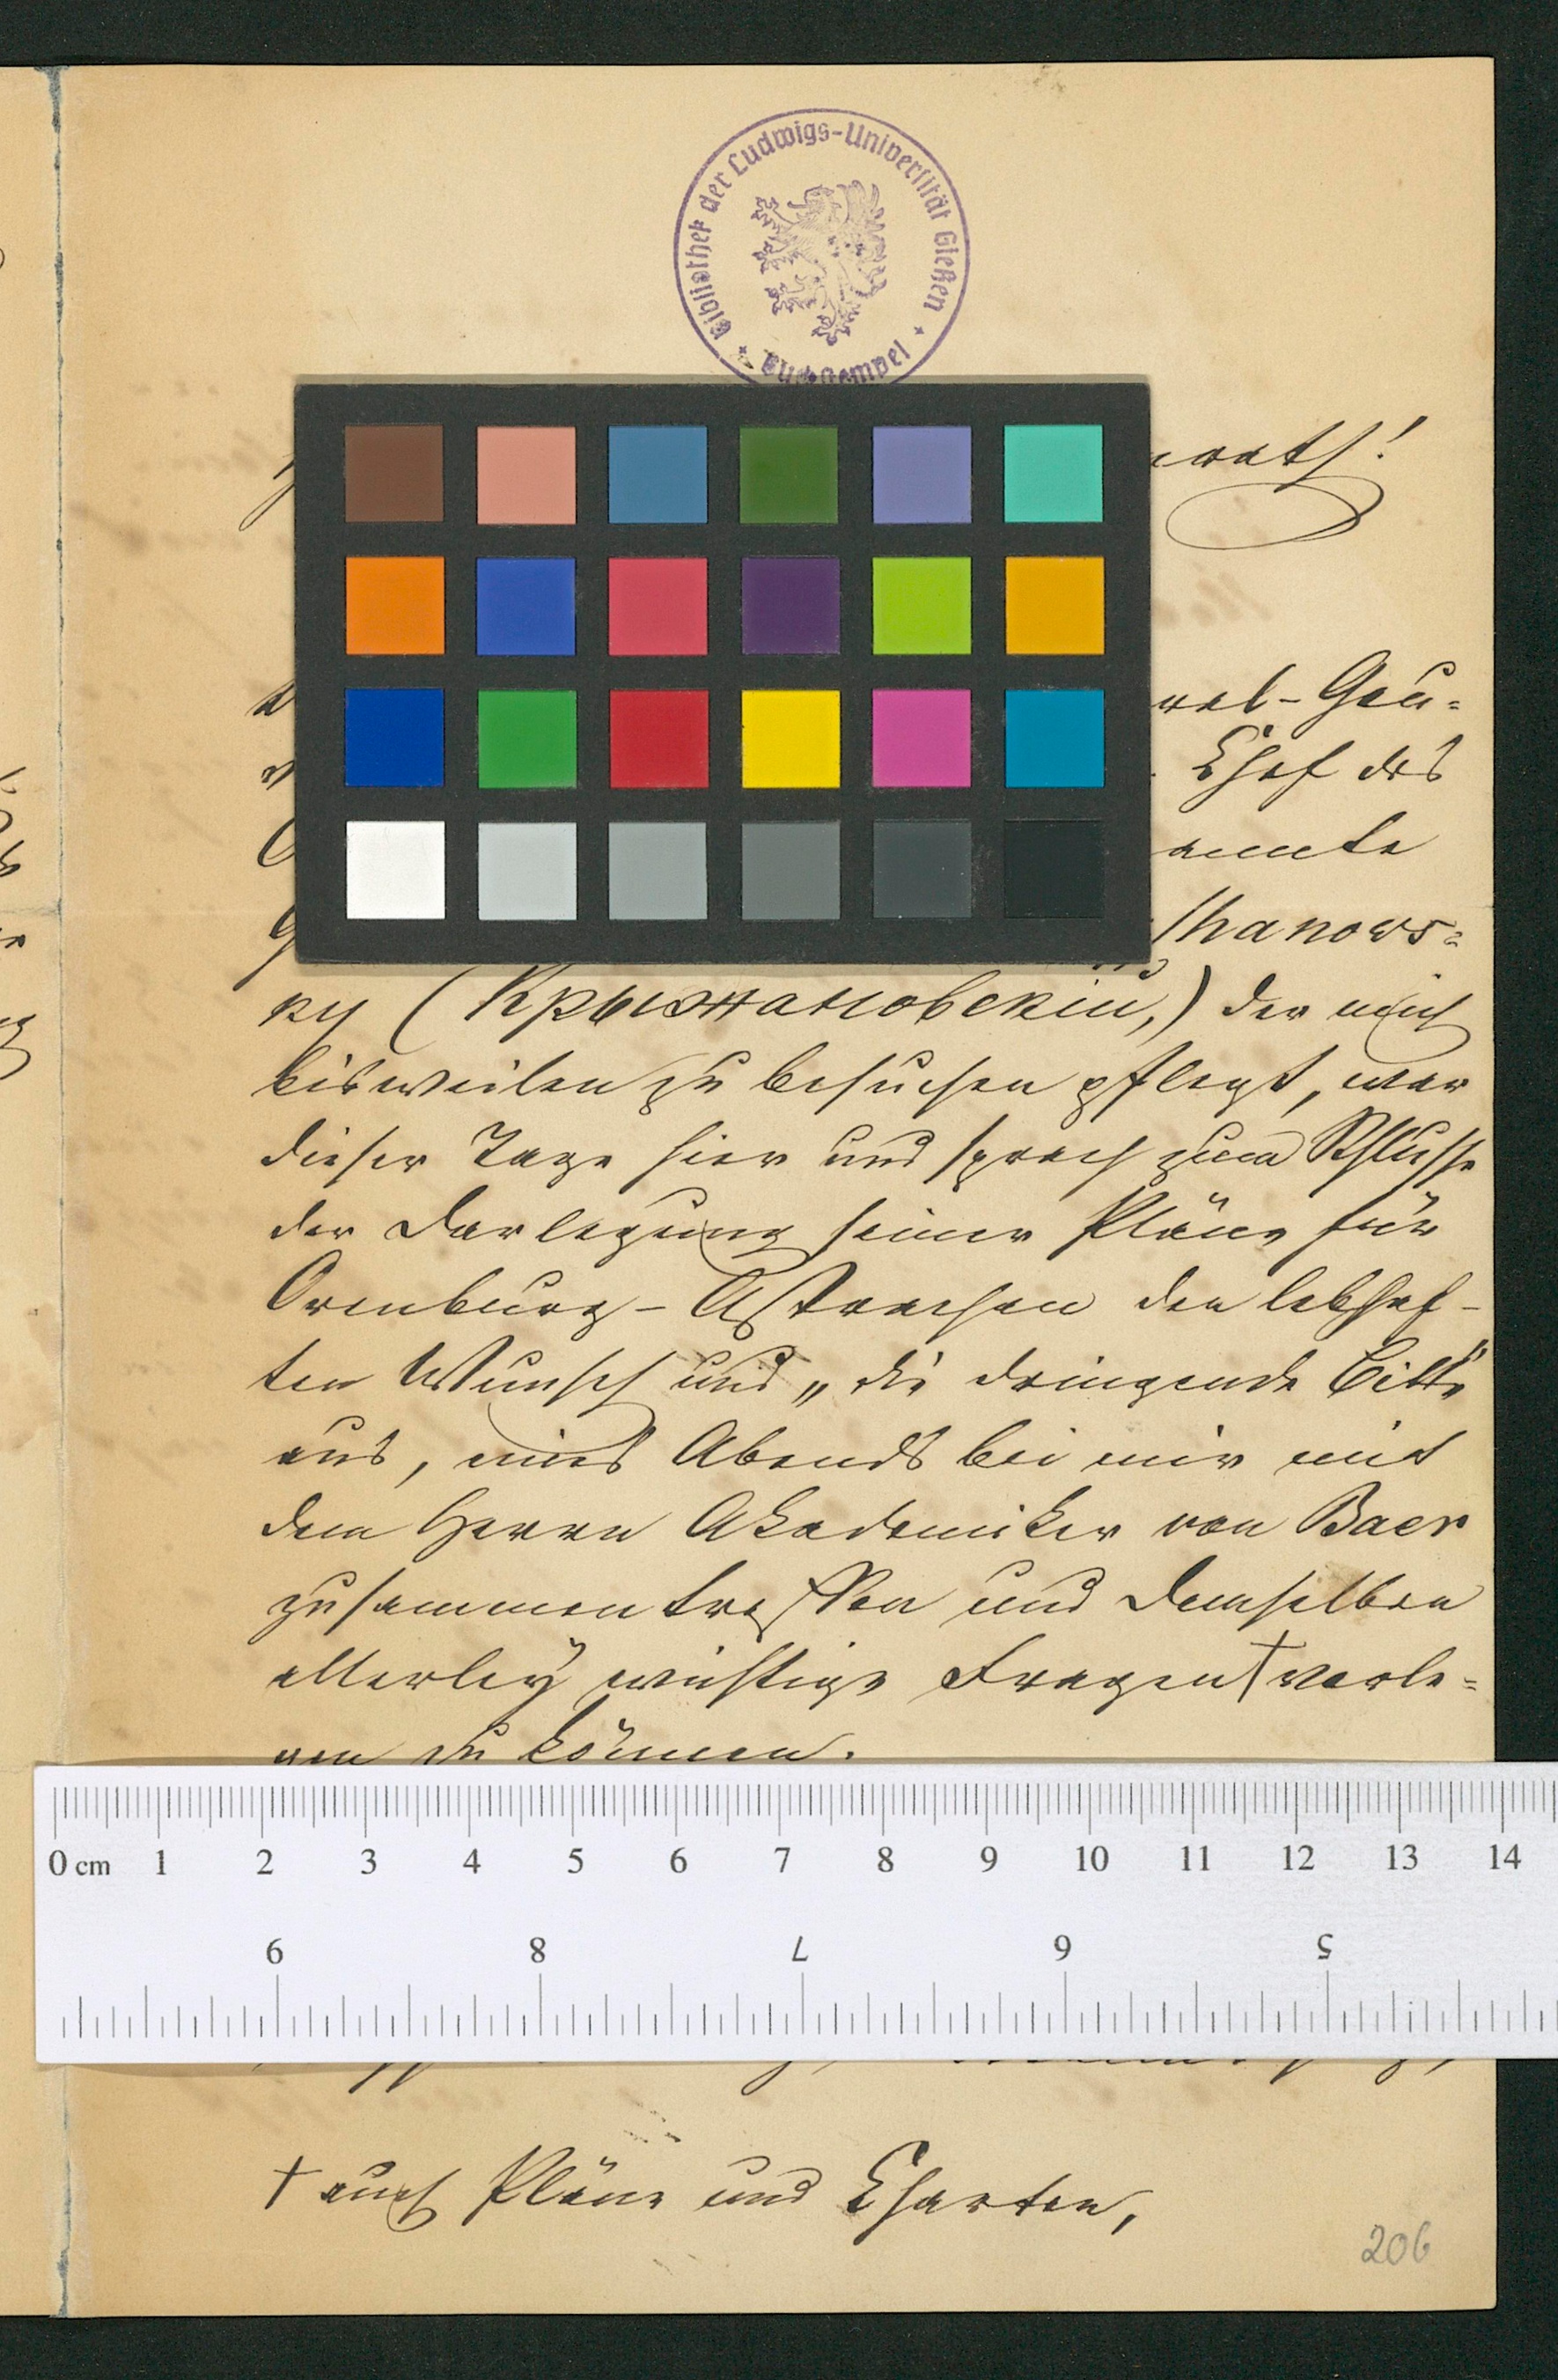 Bibliothek der Ludwigs-Universität Gießen
rath!
ral-Gou=
Chef des
annte
shanows=
ky (Крыжановскій,) der mich
bisweilen zu besuchen pflegt, war
dieser Tage hier und sprach zum Schlusse
der Darlegung seiner Pläne für
Orenburg-Astrachan den lebhaf-
ten Wunsch und „die dringende Bitte"
aus, eines Abends bei mir mit
dem Herrn Akademiker von Baer
zusammentreffen und demselben
allerley wichtige Fragen † vorle=
gen zu können.
0 cm 1 2 3 4 5 6 7 8 9 10 11 12 13 14
9 8 7 6 5
† auch Pläne und Charten,
206